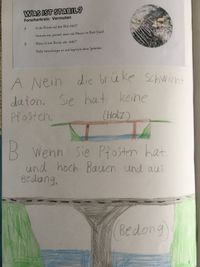 WAS IST STABIL?
Forscherkreis: Vermuten
A
B
A Nein die brüke schwimt
dafon. Sie hat keine
Pfosten.
(Holz)
B Wenn sie Pfosten hat
und hoch Bauen und aus
Bedong.
(Bedong)